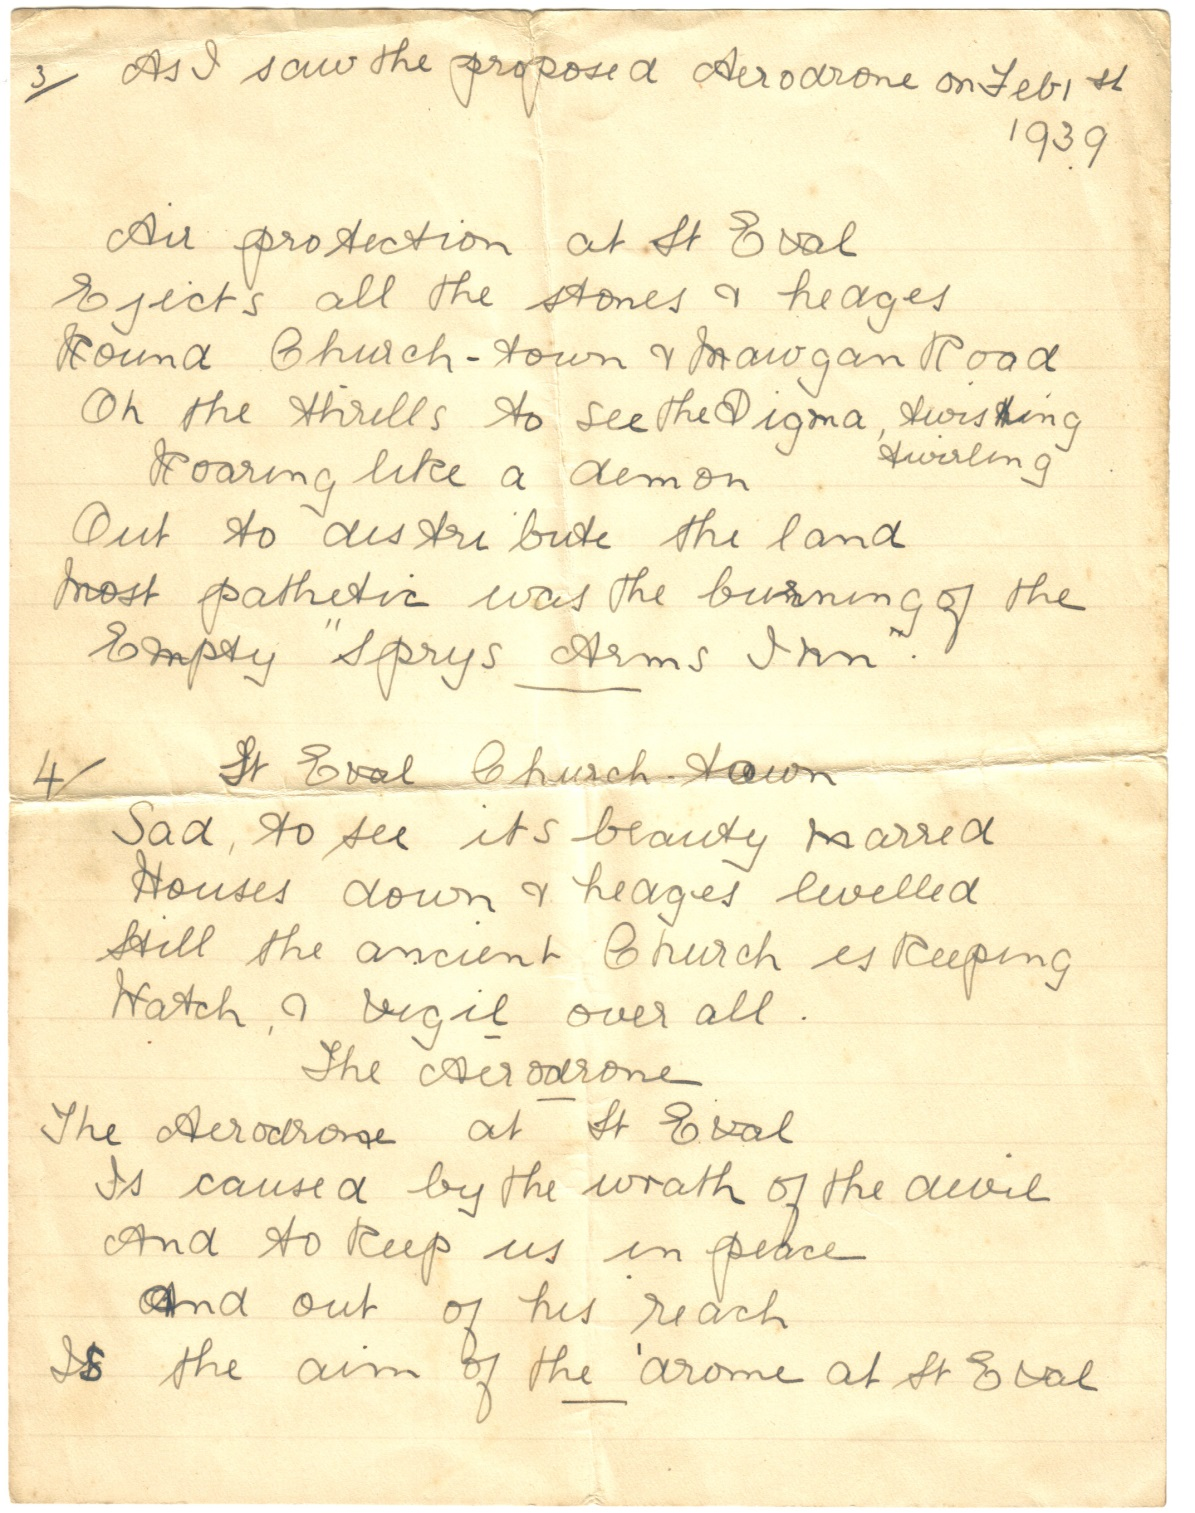 3/ As I saw the proposed Aerodrone on Feb 1st
1939
Air protection at St Eval
Ejects all the stones & hedges
Round Church-town & Mawgan Road
Oh the thrills to see the Digma, twisting
twirling
Roaring like a demon
Out to distribute the land
Most pathetic was the burning of the
Empty "Sprys Arms Inn".
4/ St Eval Church-town
Sad, to see its beauty marred
Houses down & hedges levelled
Still the ancient Church is keeping
Watch, & vigil over all.
The Aerodrone
The Aerodrone at St Eval
Is caused by the wrath of the devil
And to keep us in peace
And out of his reach
Is the aim of the 'drome at St Eval